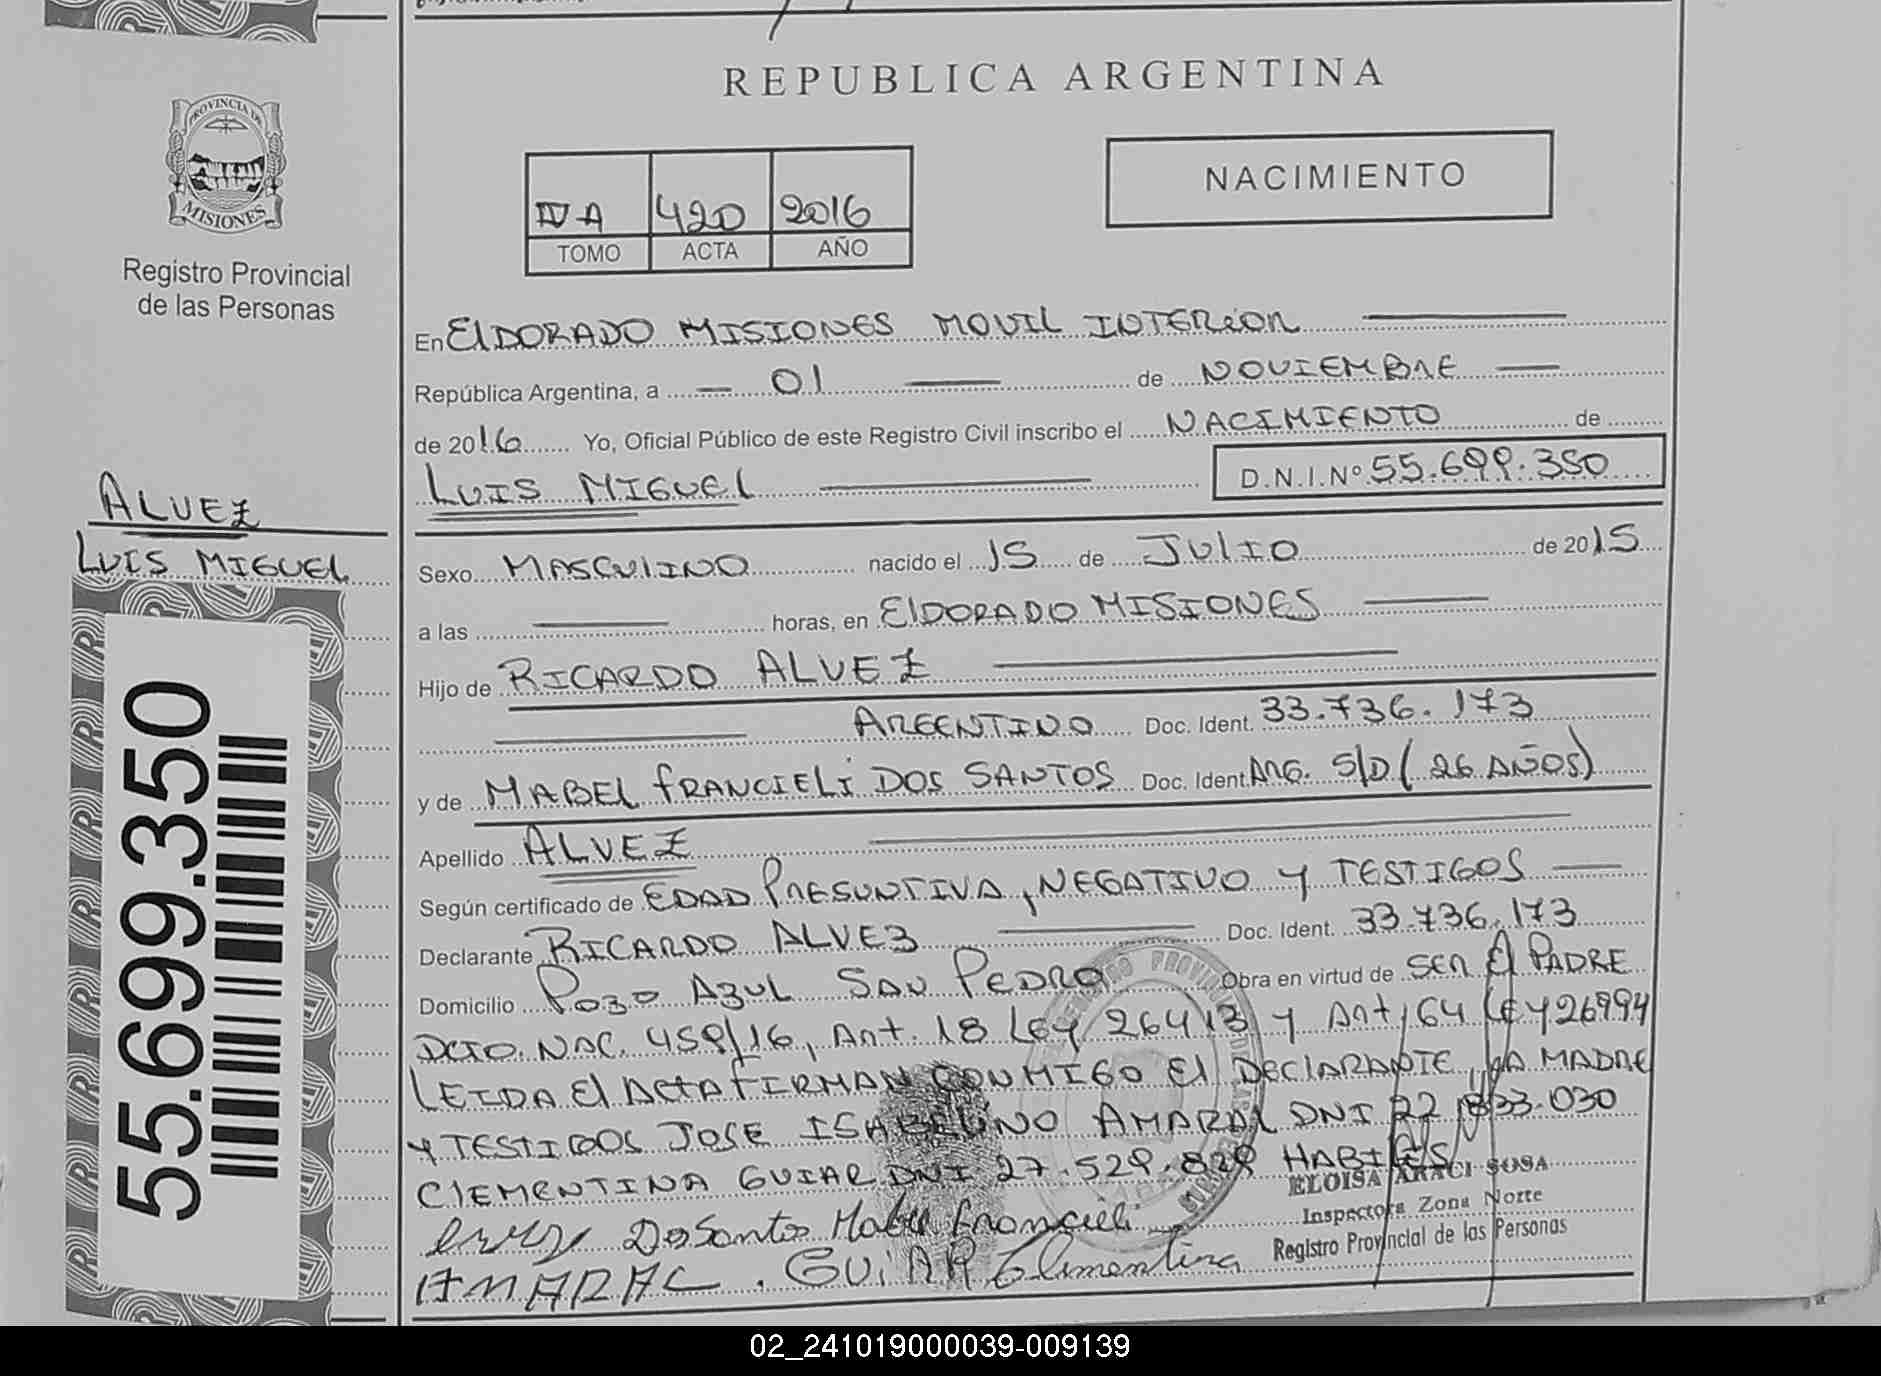 REPUBLICA ARGENTINA
PROVINCIA DE
MISIONES
Registro Provincial
de las Personas
NACIMIENTO
IV A 420 2016
TOMO ACTA AÑO
En ELDORADO MISIONES MOVIL INTERIOR
República Argentina, a 01 de NOVIEMBRE
de 2016 Yo, Oficial Público de este Registro Civil inscribo el NACIMIENTO de
LUIS MIGUEL D.N.I.Nº 55.699.350
ALVEZ
LUIS MIGUEL
55.699.350
Sexo MASCULINO nacido el 15 de JULIO de 2015
a las horas, en ELDORADO MISIONES
Hijo de RICARDO ALVEZ
ARGENTINO Doc. Ident. 33.736.173
y de MABEL FRANCIELI DOS SANTOS Doc. Ident. ARG. S/D (26 AÑOS)
Apellido ALVEZ
Según certificado de EDAD PRESUNTIVA, NEGATIVO Y TESTIGOS
Declarante RICARDO ALVEZ Doc. Ident. 33.736.173
Domicilio POZO AZUL SAN PEDRO Obra en virtud de SER El PADRE
DCTO. NAC. 459/16, Art. 18 LEY 26413 y Art 64 LEY 26994
LEIDA El ACTA FIRMAN CONMIGO El DECLARANTE, LA MADRE
Y TESTIGOS JOSE ISABELINO AMARAL DNI 22.833.030
CLEMENTINA GUIAR DNI 27.529.829 HABILES
ELOISA ARACI SOSA
Inspectora Zona Norte
Registro Provincial de las Personas
DosSantos Mabel francieli
AMARAL. GUiAR Clementina
02_241019000039-009139